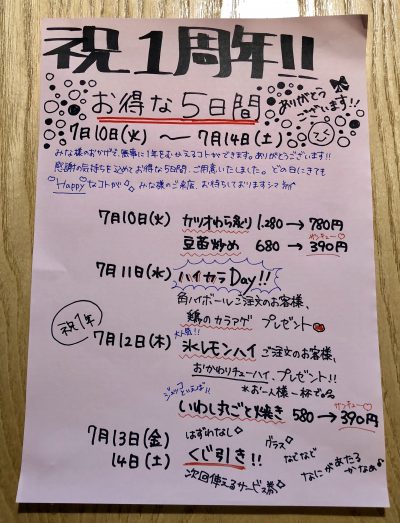 祝1周年!!
お得な5日間
ありがとう
ございます!!
7月10日(火) 〜 7月14日(土)
みな様のおかげで、無事に1年をむかえるコトができます。ありがとうございます!!
感謝の気持ちを込めてお得な5日間、ご用意いたしました。どの日にきても
Happyなコトが♡みな様のご来店、お待ちしておりますシマ
7月10日(火) カツオわら炙り 1,280→780円
サンキュー♡
豆苗炒め 680→390円
7月11日(水) ハイカラDay!!
角ハイボールご注文のお客様、
鶏のカラアゲ プレゼント
祝1年
大人気!!
7月12日(木) 氷レモンハイ ご注文のお客様、
おかわりチューハイ、プレゼント!!
*お一人様一杯で
ジュッコといえば!!
サンキュー♡
いわし丸ごと焼き 580→390円
7月13日(金) はずれなし
14日(土) くじ引き!!
次回使えるサービス券
グラス
などなど
なにがあたる
かなぁ